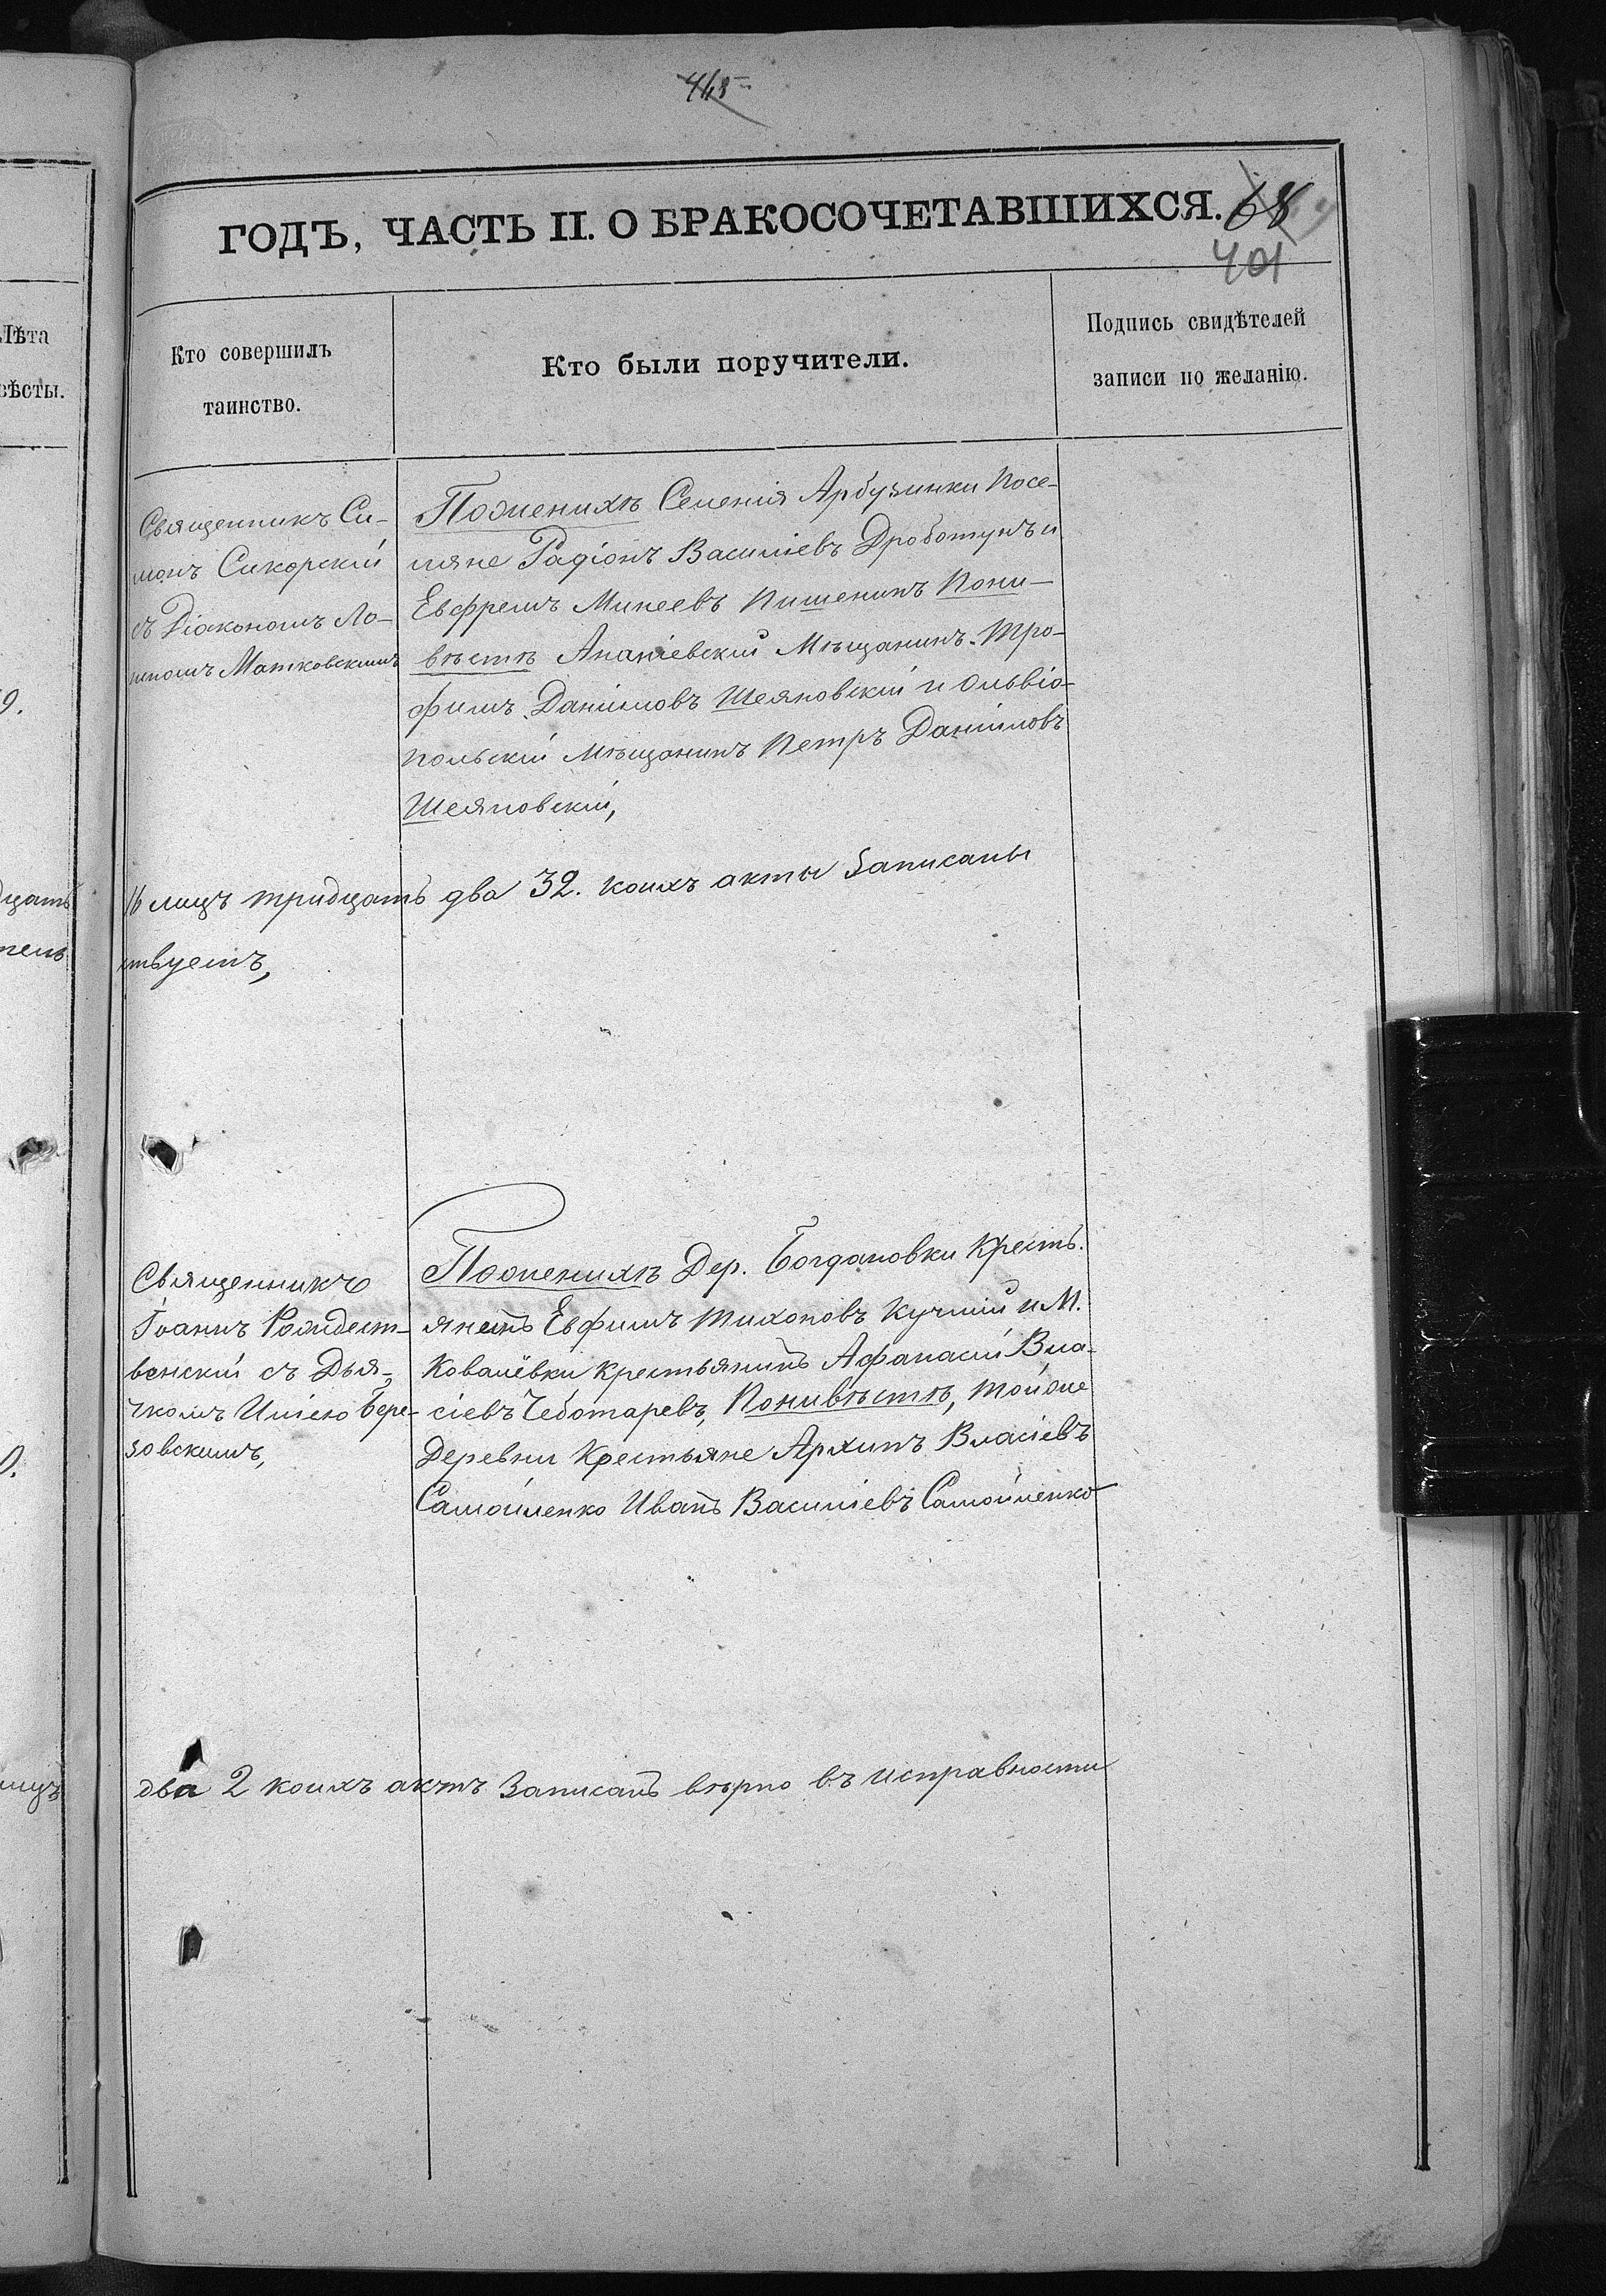 ГОДЪ, ЧАСТЬ II. О БРАКОСОЧЕТАВШИХСЯ. 68
401
Лѣта
вѣсты.
Кто совершилъ
таинство.
Кто были поручители.
Подпись свидѣтелей
записи по желанію.
Священникъ Си-
монъ Сикорскій
съ Діакономъ Ло-
гиномъ Матковскимъ
Поженихѣ Селенія Арбузинки Посе-
ляне Радіонъ Василіевъ Дроботунъ и
Евфремъ Минеевъ Пишенинъ Пони-
вѣстѣ Ананіевскій Мѣщанинъ Тро-
фимъ Даніиловъ Шеяновскій и Ольвіо-
польскій Мѣщанинъ Петръ Даніиловъ
Шеяновскій,
лицъ тридцать два 32. коихъ акты записаны
ствуемъ,
Священникъ
Іоаннъ Рождест-
венскій съ Дья-
чкомъ Иліею Бере-
зовскимъ,
Поженихѣ Дер. Богдановки Кресть-
янинъ Евфимъ Тихоновъ Кучмій и М.
Ковалёвки крестьянинъ Афанасій Вла-
сіевъ Чеботаревъ, Понивѣстѣ, той же
Деревни Крестьяне Архипъ Власіевъ
Самойленко Иванъ Василіевъ Самойленко
два 2 коихъ актъ записанъ вѣрно въ исправности